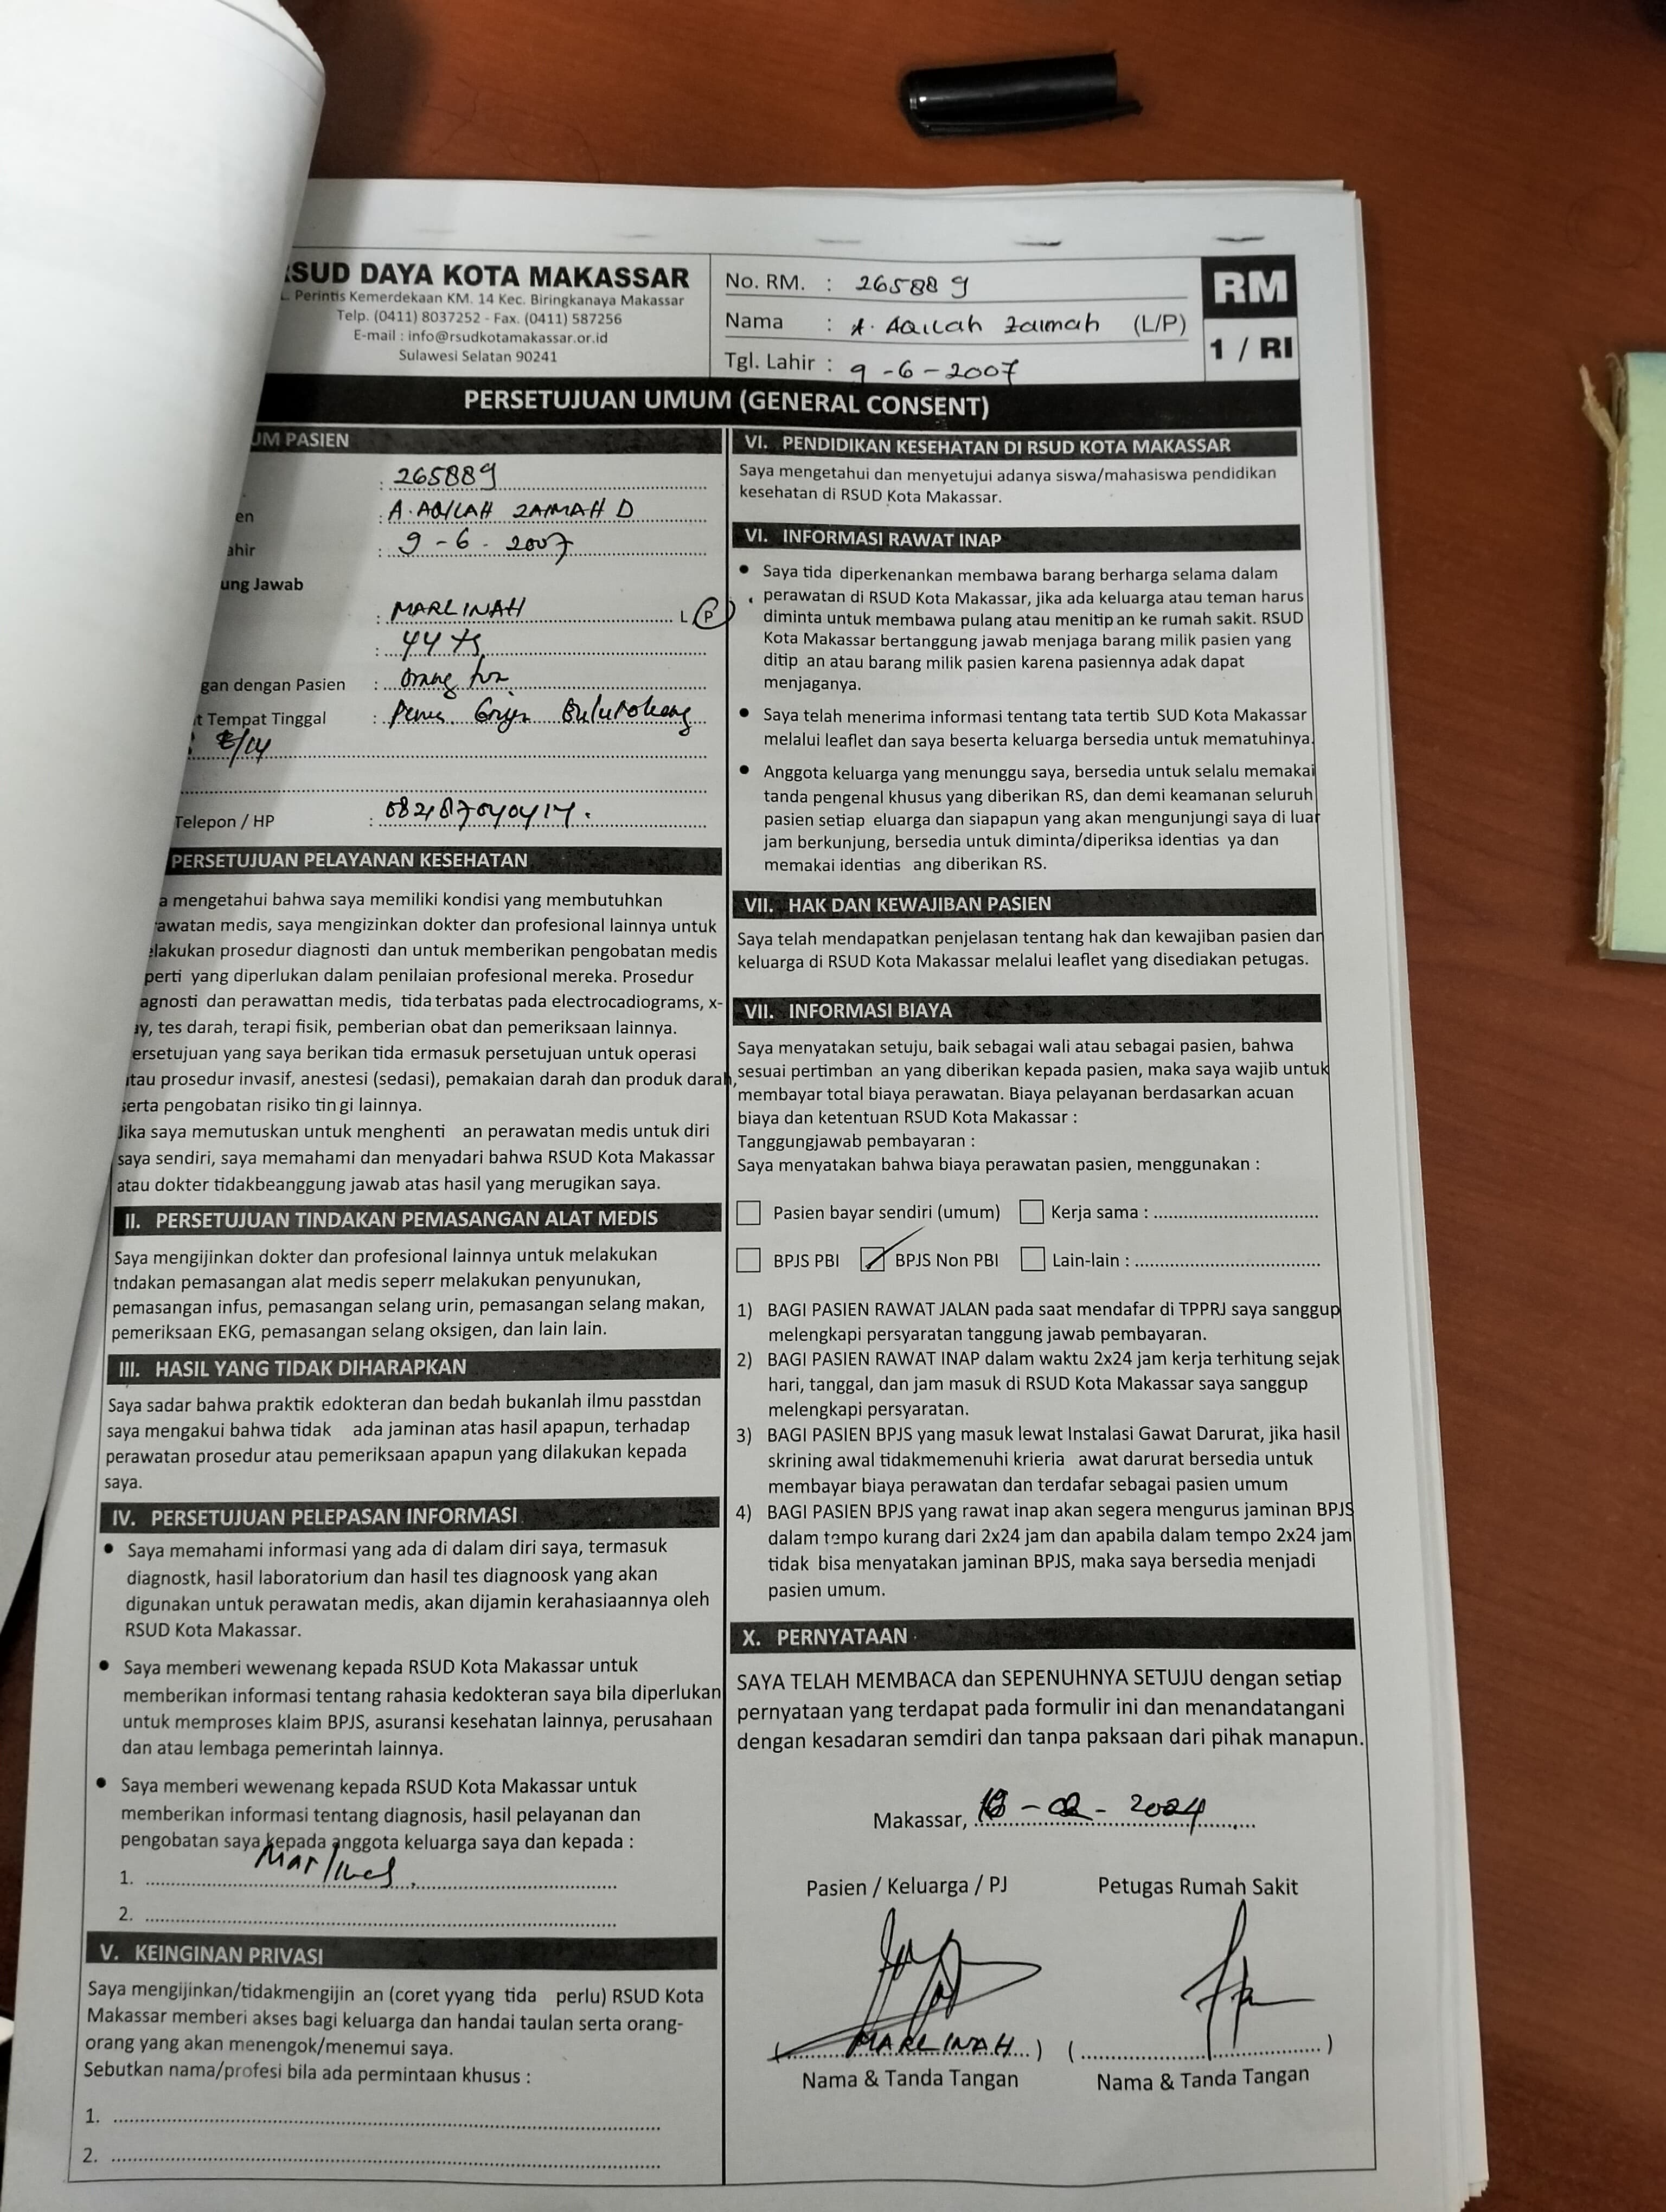 RSUD DAYA KOTA MAKASSAR
Perintis Kemerdekaan KM. 14 Kec. Biringkanaya Makassar
Telp. (0411) 8037252 - Fax. (0411) 587256
E-mail : info@rsudkotamakassar.or.id
Sulawesi Selatan 90241
No. RM. : 265889
Nama : A. AQILah Zaimah (L/P)
Tgl. Lahir : 9-6-2007
RM
1 / RI
PERSETUJUAN UMUM (GENERAL CONSENT)
UM PASIEN
: 265889
en : A. AQILAH ZAIMAH D
ahir : 9-6-2007
ung Jawab
: MARLINAH L P
: 44
gan dengan Pasien : Orang
t Tempat Tinggal :
Telepon / HP :
PERSETUJUAN PELAYANAN KESEHATAN
a mengetahui bahwa saya memiliki kondisi yang membutuhkan
awatan medis, saya mengizinkan dokter dan profesional lainnya untuk
elakukan prosedur diagnosti dan untuk memberikan pengobatan medis
perti yang diperlukan dalam penilaian profesional mereka. Prosedur
agnosti dan perawattan medis, tida terbatas pada electrocadiograms, x-
ay, tes darah, terapi fisik, pemberian obat dan pemeriksaan lainnya.
ersetujuan yang saya berikan tida ermasuk persetujuan untuk operasi
atau prosedur invasif, anestesi (sedasi), pemakaian darah dan produk darah,
serta pengobatan risiko tin gi lainnya.
Jika saya memutuskan untuk menghenti an perawatan medis untuk diri
saya sendiri, saya memahami dan menyadari bahwa RSUD Kota Makassar
atau dokter tidakbeanggung jawab atas hasil yang merugikan saya.
II. PERSETUJUAN TINDAKAN PEMASANGAN ALAT MEDIS
Saya mengijinkan dokter dan profesional lainnya untuk melakukan
tndakan pemasangan alat medis seperr melakukan penyunukan,
pemasangan infus, pemasangan selang urin, pemasangan selang makan,
pemeriksaan EKG, pemasangan selang oksigen, dan lain lain.
III. HASIL YANG TIDAK DIHARAPKAN
Saya sadar bahwa praktik edokteran dan bedah bukanlah ilmu passtdan
saya mengakui bahwa tidak ada jaminan atas hasil apapun, terhadap
perawatan prosedur atau pemeriksaan apapun yang dilakukan kepada
saya.
IV. PERSETUJUAN PELEPASAN INFORMASI
• Saya memahami informasi yang ada di dalam diri saya, termasuk
diagnostk, hasil laboratorium dan hasil tes diagnoosk yang akan
digunakan untuk perawatan medis, akan dijamin kerahasiaannya oleh
RSUD Kota Makassar.
• Saya memberi wewenang kepada RSUD Kota Makassar untuk
memberikan informasi tentang rahasia kedokteran saya bila diperlukan
untuk memproses klaim BPJS, asuransi kesehatan lainnya, perusahaan
dan atau lembaga pemerintah lainnya.
• Saya memberi wewenang kepada RSUD Kota Makassar untuk
memberikan informasi tentang diagnosis, hasil pelayanan dan
pengobatan saya kepada anggota keluarga saya dan kepada :
1.
2.
V. KEINGINAN PRIVASI
Saya mengijinkan/tidakmengijin an (coret yyang tida perlu) RSUD Kota
Makassar memberi akses bagi keluarga dan handai taulan serta orang-
orang yang akan menengok/menemui saya.
Sebutkan nama/profesi bila ada permintaan khusus :
1.
2.
VI. PENDIDIKAN KESEHATAN DI RSUD KOTA MAKASSAR
Saya mengetahui dan menyetujui adanya siswa/mahasiswa pendidikan
kesehatan di RSUD Kota Makassar.
VI. INFORMASI RAWAT INAP
• Saya tida diperkenankan membawa barang berharga selama dalam
perawatan di RSUD Kota Makassar, jika ada keluarga atau teman harus
diminta untuk membawa pulang atau menitip an ke rumah sakit. RSUD
Kota Makassar bertanggung jawab menjaga barang milik pasien yang
ditip an atau barang milik pasien karena pasiennya adak dapat
menjaganya.
• Saya telah menerima informasi tentang tata tertib SUD Kota Makassar
melalui leaflet dan saya beserta keluarga bersedia untuk mematuhinya.
• Anggota keluarga yang menunggu saya, bersedia untuk selalu memakai
tanda pengenal khusus yang diberikan RS, dan demi keamanan seluruh
pasien setiap eluarga dan siapapun yang akan mengunjungi saya di luar
jam berkunjung, bersedia untuk diminta/diperiksa identias ya dan
memakai identias ang diberikan RS.
VII. HAK DAN KEWAJIBAN PASIEN
Saya telah mendapatkan penjelasan tentang hak dan kewajiban pasien dan
keluarga di RSUD Kota Makassar melalui leaflet yang disediakan petugas.
VII. INFORMASI BIAYA
Saya menyatakan setuju, baik sebagai wali atau sebagai pasien, bahwa
sesuai pertimban an yang diberikan kepada pasien, maka saya wajib untuk
membayar total biaya perawatan. Biaya pelayanan berdasarkan acuan
biaya dan ketentuan RSUD Kota Makassar :
Tanggungjawab pembayaran :
Saya menyatakan bahwa biaya perawatan pasien, menggunakan :
Pasien bayar sendiri (umum) Kerja sama :
BPJS PBI BPJS Non PBI Lain-lain :
1) BAGI PASIEN RAWAT JALAN pada saat mendafar di TPPRJ saya sanggup
melengkapi persyaratan tanggung jawab pembayaran.
2) BAGI PASIEN RAWAT INAP dalam waktu 2x24 jam kerja terhitung sejak
hari, tanggal, dan jam masuk di RSUD Kota Makassar saya sanggup
melengkapi persyaratan.
3) BAGI PASIEN BPJS yang masuk lewat Instalasi Gawat Darurat, jika hasil
skrining awal tidakmemenuhi krieria awat darurat bersedia untuk
membayar biaya perawatan dan terdafar sebagai pasien umum
4) BAGI PASIEN BPJS yang rawat inap akan segera mengurus jaminan BPJS
dalam tempo kurang dari 2x24 jam dan apabila dalam tempo 2x24 jam
tidak bisa menyatakan jaminan BPJS, maka saya bersedia menjadi
pasien umum.
X. PERNYATAAN
SAYA TELAH MEMBACA dan SEPENUHNYA SETUJU dengan setiap
pernyataan yang terdapat pada formulir ini dan menandatangani
dengan kesadaran semdiri dan tanpa paksaan dari pihak manapun.
Makassar, - 02 - 2024
Pasien / Keluarga / PJ Petugas Rumah Sakit
(MARLINAH) ( )
Nama & Tanda Tangan Nama & Tanda Tangan